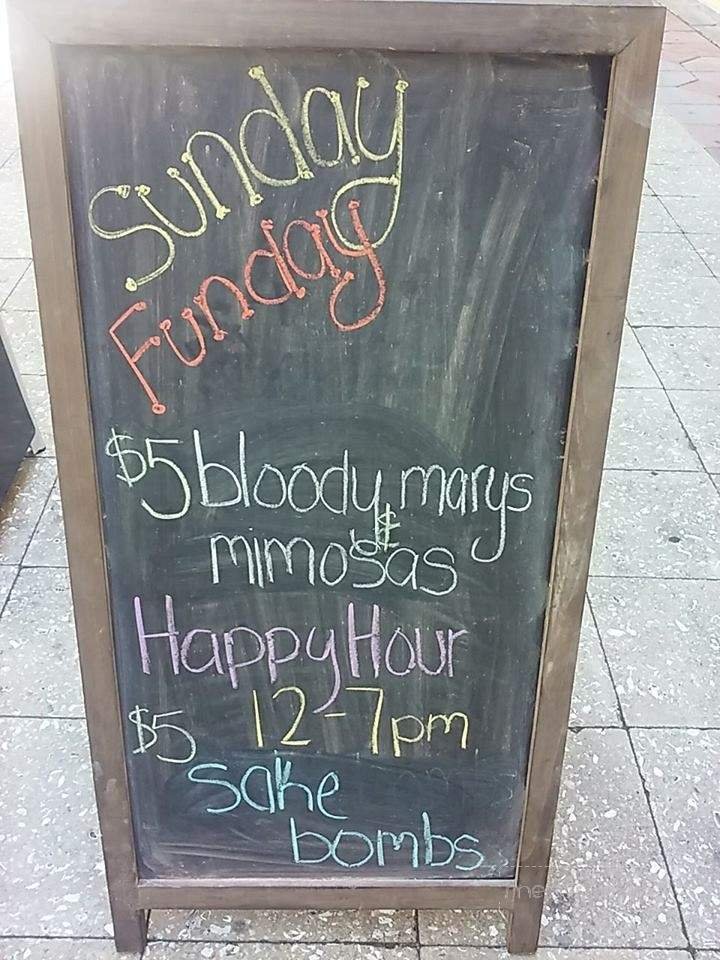 Sunday
Funday
$5 bloody marys
&
mimosas
Happy Hour
12-7pm
$5
sake
bombs